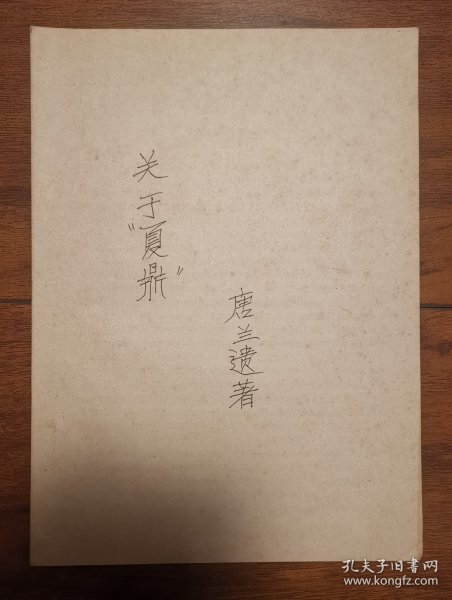 关于“夏鼎”
唐兰遗著
孔夫子旧书网
www.kongfz.com